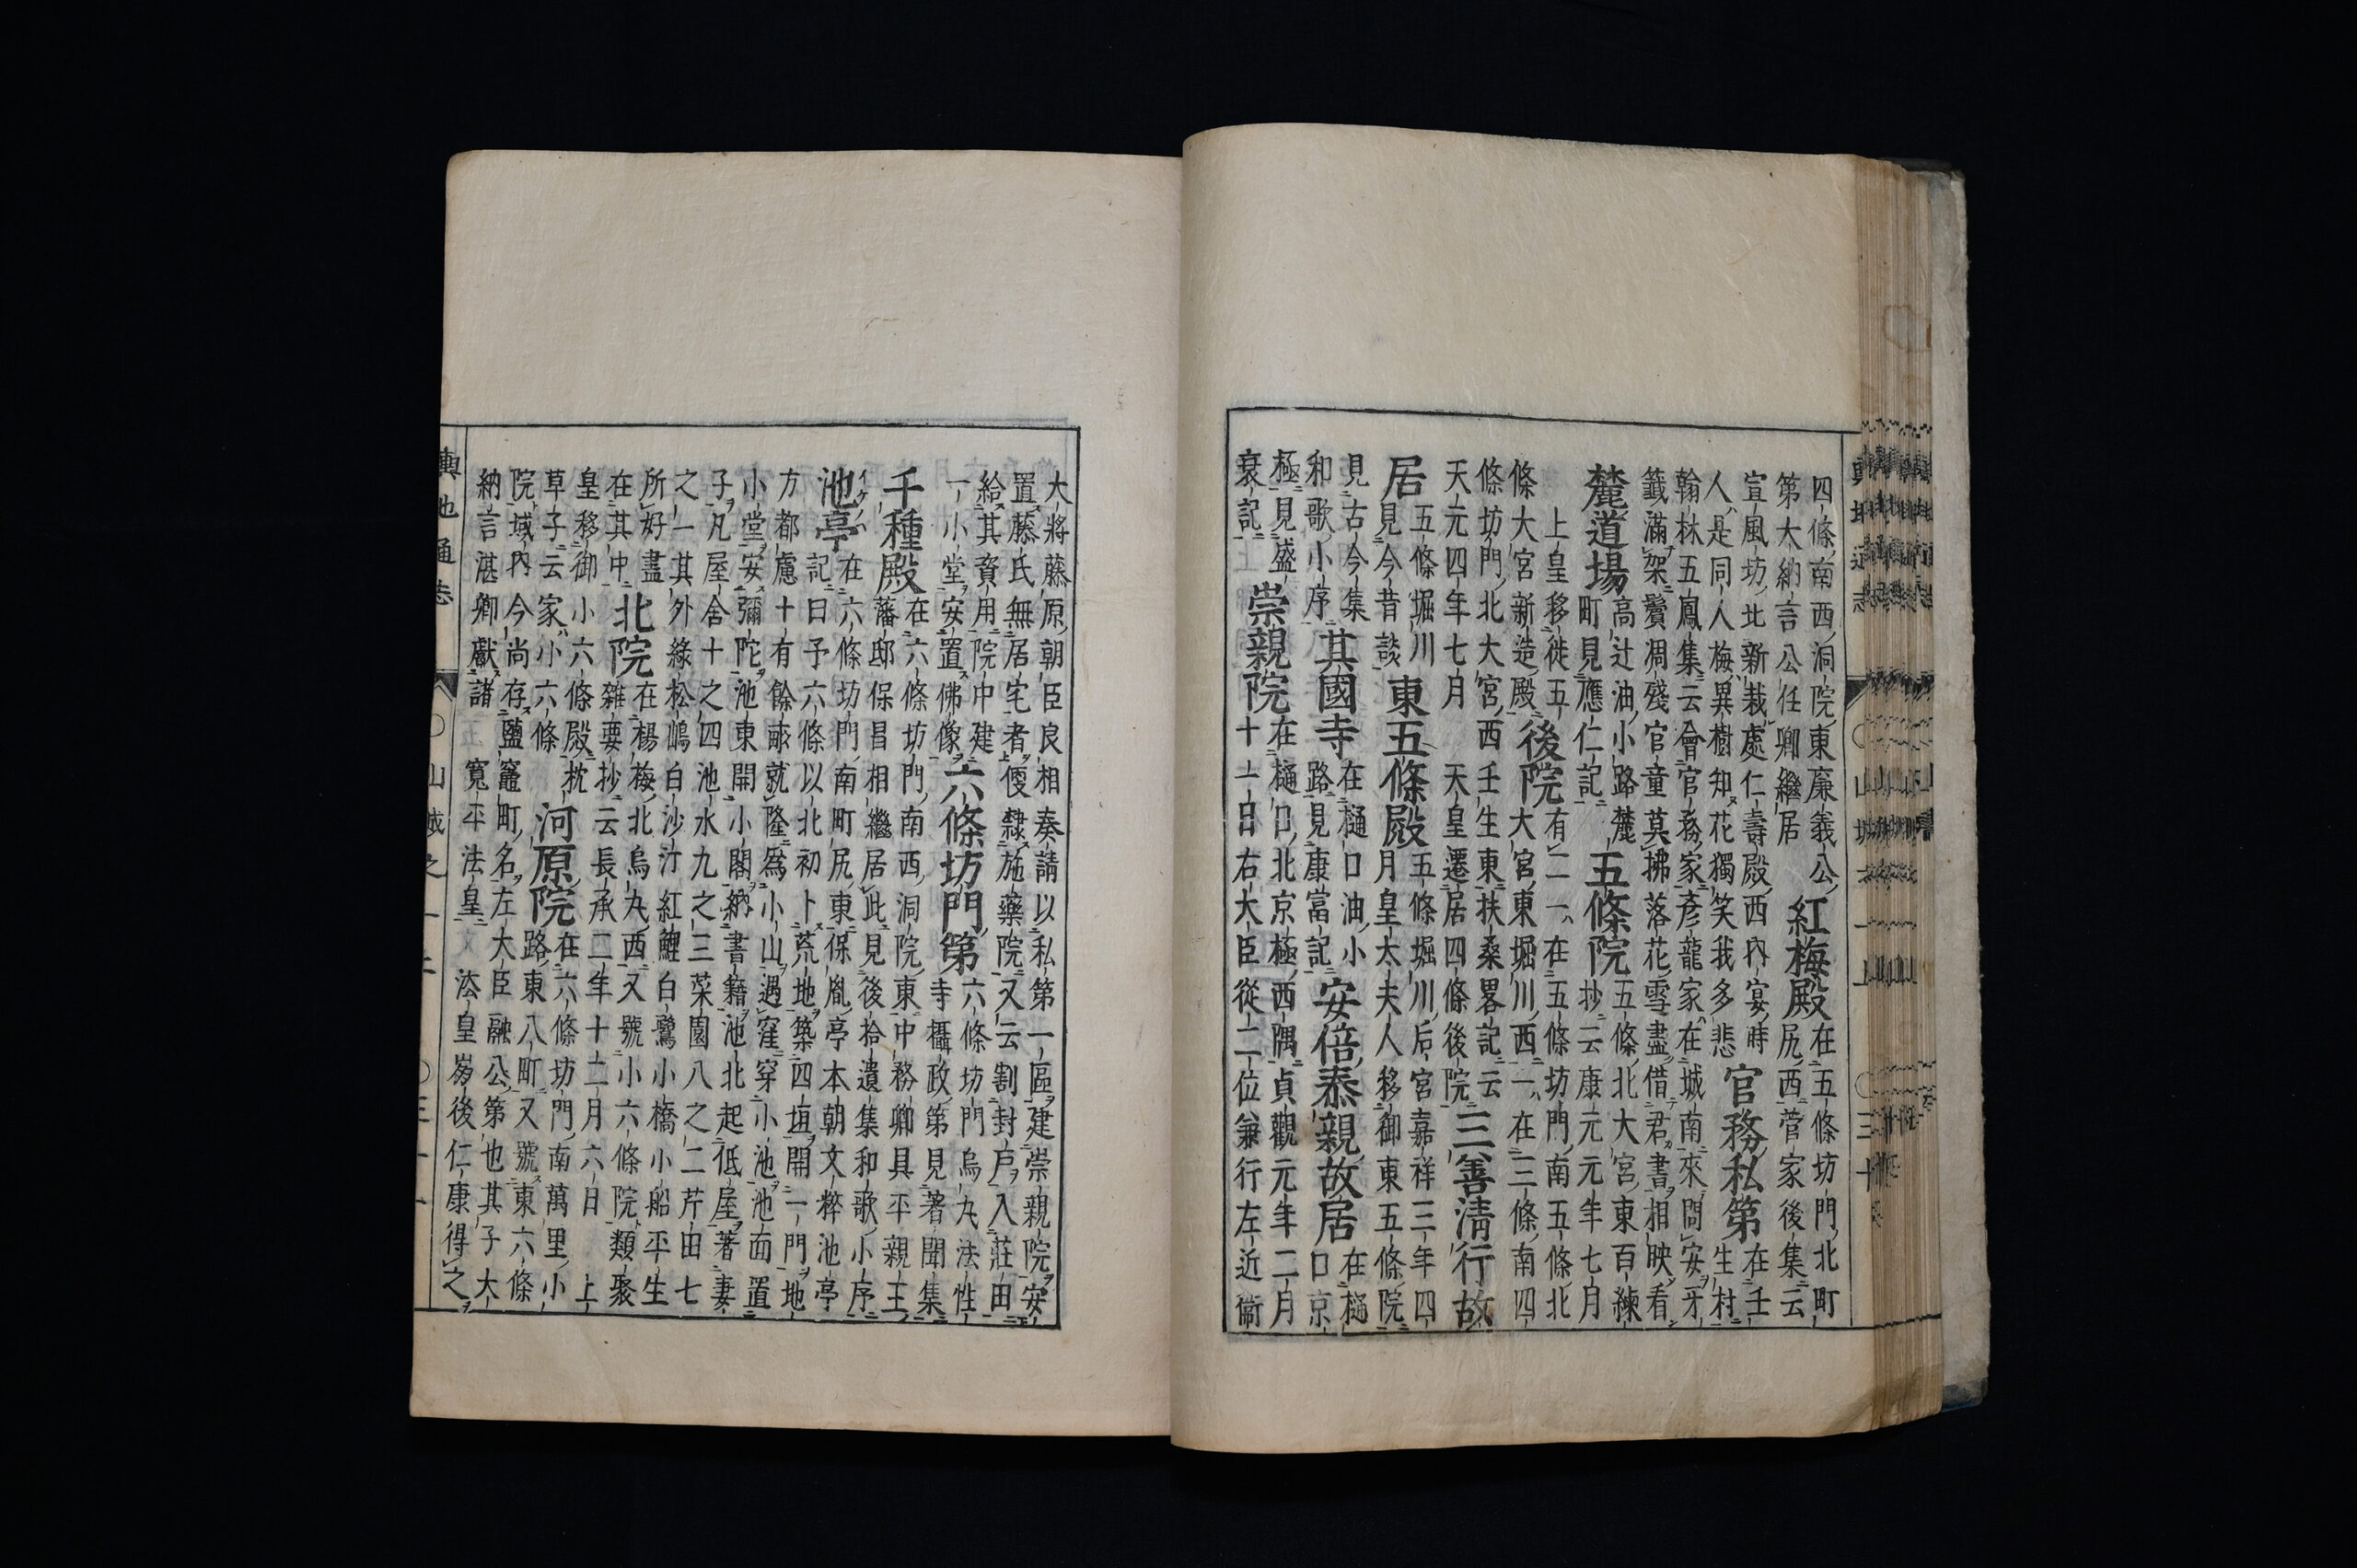 四條南西洞院東廉義公
第大納言公任卿繼居
紅梅殿
在五條坊門北町
尻西菅家後集云
宣風坊北新栽處仁壽殿西内宴時
人是同人梅異樹知花獨笑我多悲
官務私第
在壬
生村
翰林五鳳集云會官務家彦龍家在城南來問安牙
籤滿架鬢凋殘官童莫拂落花雪盡借君書相映看
麓道場
高辻油小路麓
町見應仁記
五條院
五條北大宮東百練
抄云康元元年七月
上皇移徙五
條大宮新造殿
後院
有二一在五條坊門南五條北
大宮東堀川西一在三條南四
條坊門北大宮西壬生東扶桑畧記云
天元四年七月 天皇遷居四條後院
三善清行故
居
五條堀川
見今昔談
東五條殿
五條堀川后宮嘉祥三年四
月皇太夫人移御東五條院
見古今集
和歌小序
其國寺
在樋口油小
路見康富記
安倍泰親故居
在樋
口京
極見盛
衰記
崇親院
在樋口北京極西隅貞觀元年二月
十一日右大臣從二位兼行左近衞
大將藤原朝臣良相奏請以私第一區建崇親院安
置藤氏無居宅者優隸施藥院又云割封戸入莊田
給其資用院中建
一小堂安置佛像
六條坊門第
六條坊門烏丸法性
寺攝政第見著聞集
千種殿
在六條坊門南西洞院東中務卿具平親王
藩邸保昌相繼居此見後拾遺集和歌小序
池亭
在六條坊門南町尻東保胤亭本朝文粹池亭
記曰予六條以北初卜荒地築四垣開一門地
方都慮十有餘畝就隆爲小山遇窪穿小池池面置
小堂安彌陀池東開小閣納書籍池北起低屋著妻
子凡屋舍十之四池水九之三菜園八之二芹田七
之一其外綠松嶋白沙汀紅鯉白鷺小橋小船平生
所好盡
在其中
北院
在楊梅北烏丸西又號小六條院類聚
雜要抄云長承二年十二月六日 上
皇移御小六條殿枕
草子云家小六條
河原院
在六條坊門南萬里小
路東八町又號東六條
院域内今尚存鹽竈町名左大臣融公第也其子大
納言湛卿獻諸 寛平法皇 法皇崩後仁康得之